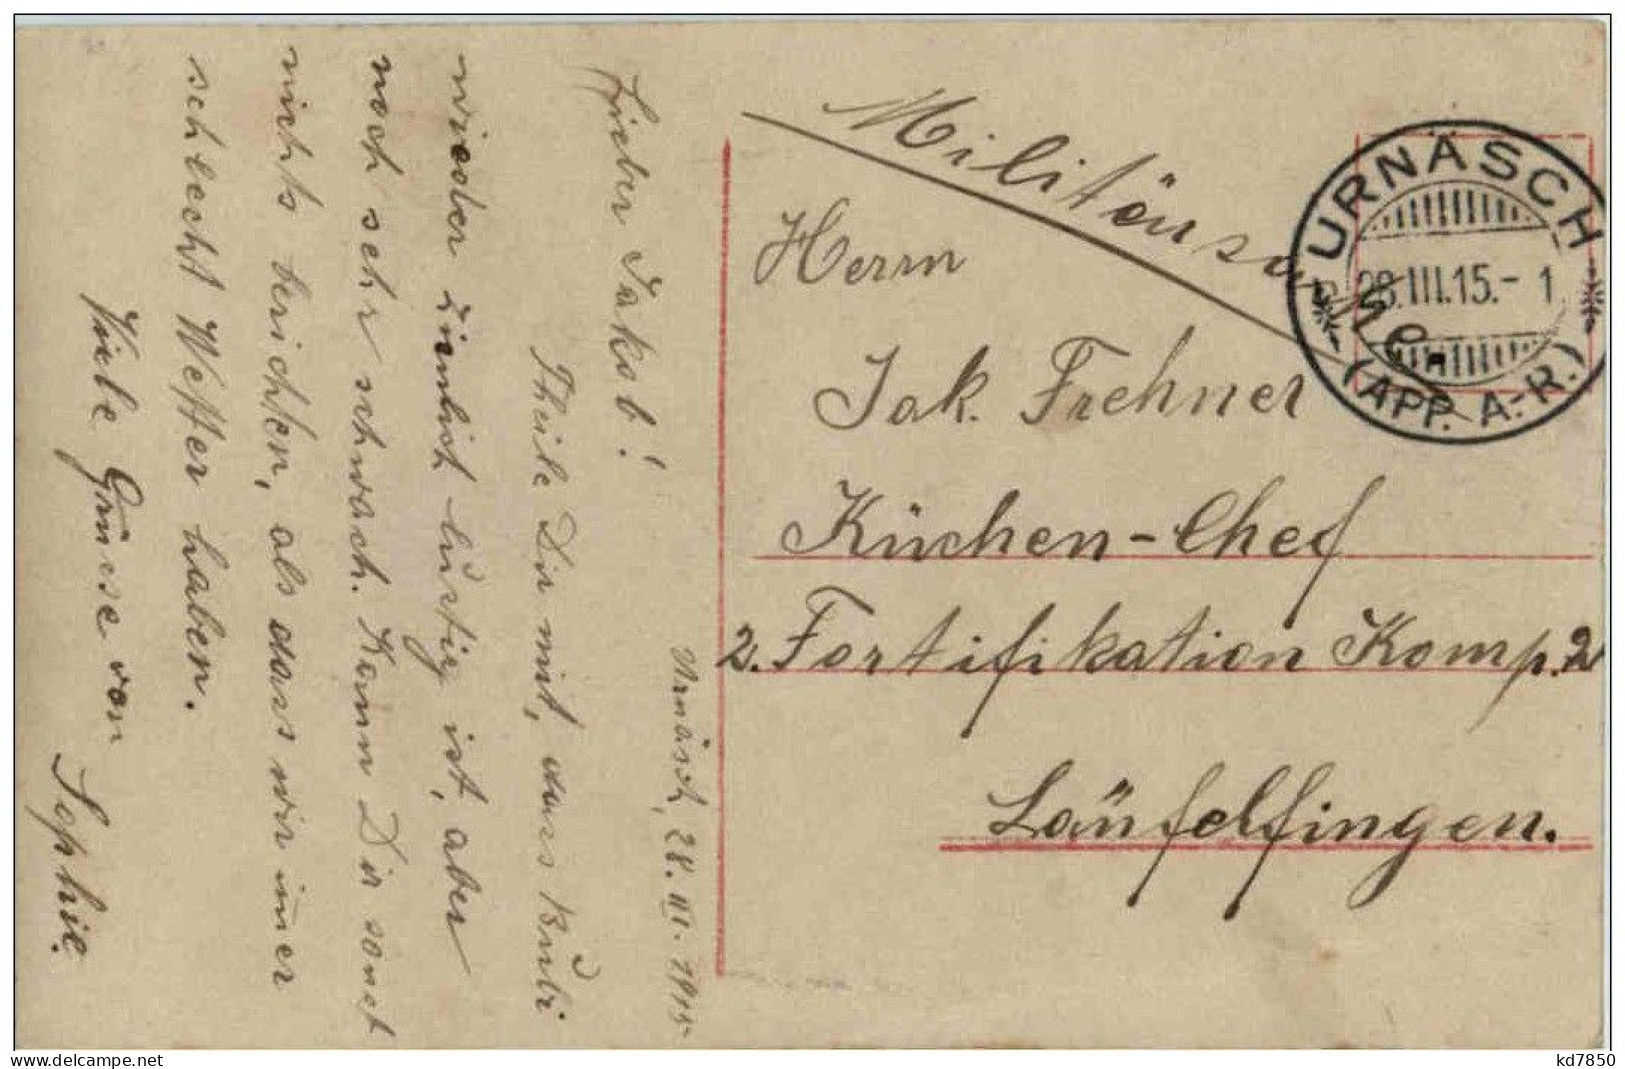 Urnäsch, 28. III. 1915
Lieber Jakob!
Theile Dir mit, dass Buebi
wieder zimlich lustig ist, aber
noch sehr schwach. Kann Dir sonst
nichts berichten, als dass wir imer
schlecht Wetter haben.
Viele Grüsse von
Sophie.
Militärsache.
URNÄSCH
28.III.15.-1
(APP. A.-R.)
Herrn
Jak. Frehner
Küchen-Chef
2. Fortifikation Komp. 2
Läufelfingen.
delcampe.net
kd7850